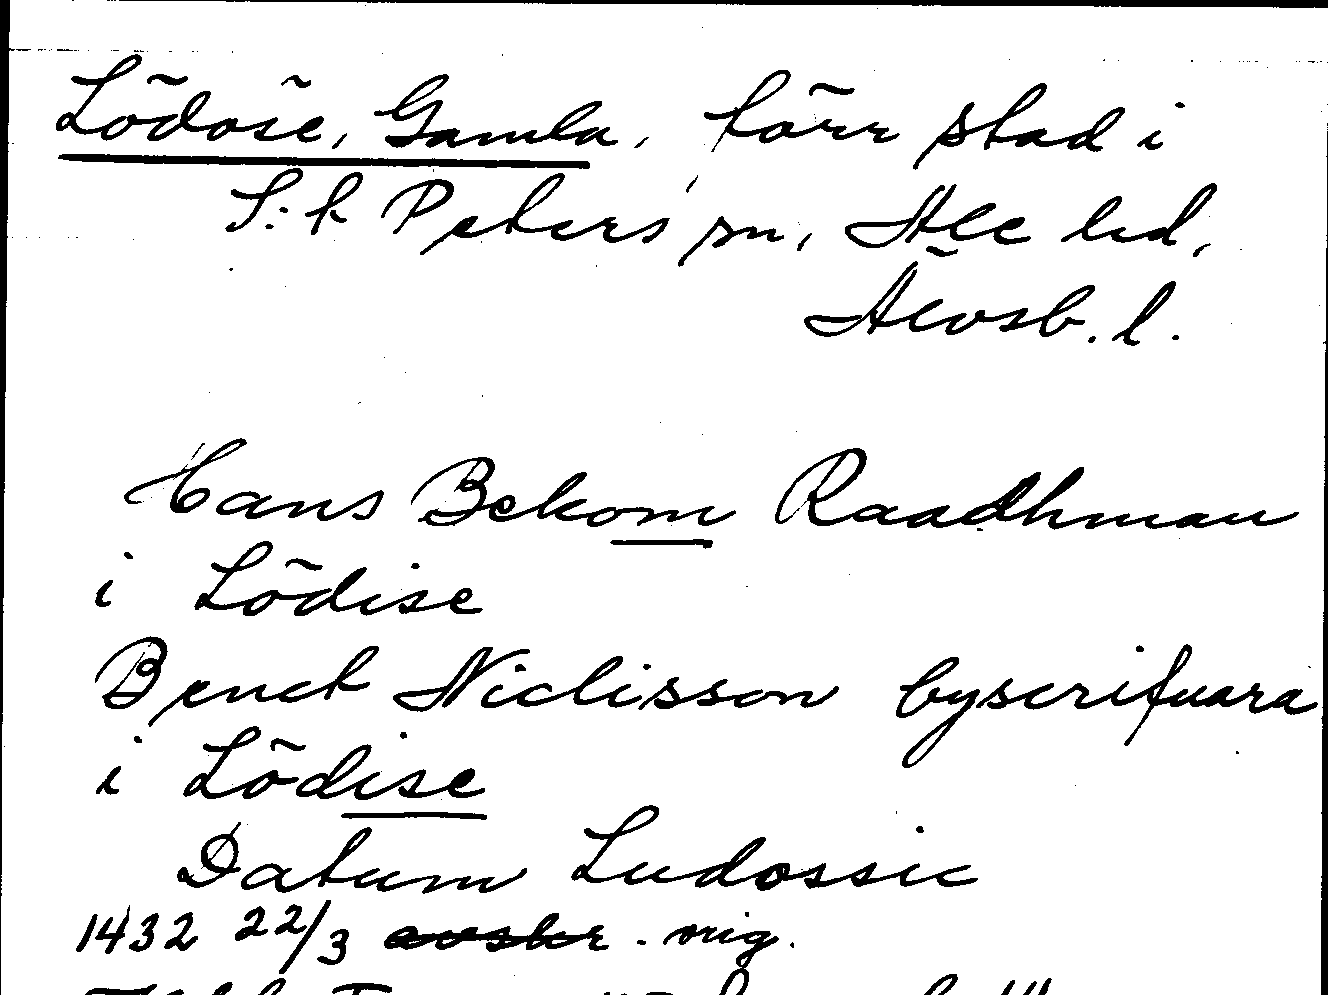 Lödöse, Gamla, förr stad i
S:t Peters sn, Ale hd,
Älvsb. l.
Hans Bekom Raadhman
i Lödise
Benct Niclisson byscrifuara
i Lödise
Datum Ludossie
1432 22/3 avskr. orig.